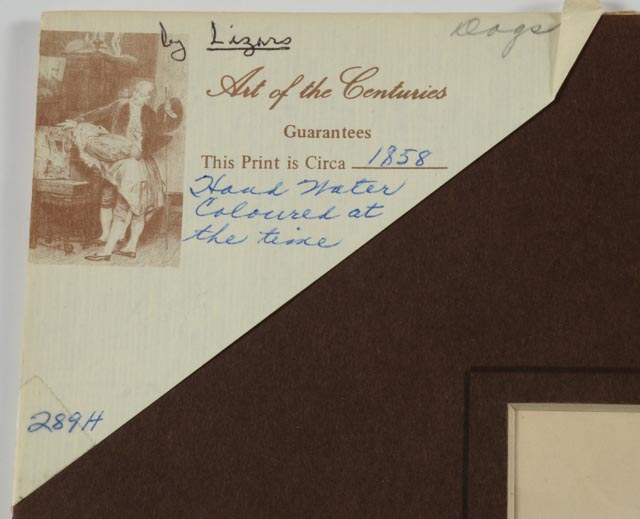 by Lizars
Dogs
Art of the Centuries
Guarantees
This Print is Circa 1858
Hand Water
Coloured at
the time
289H